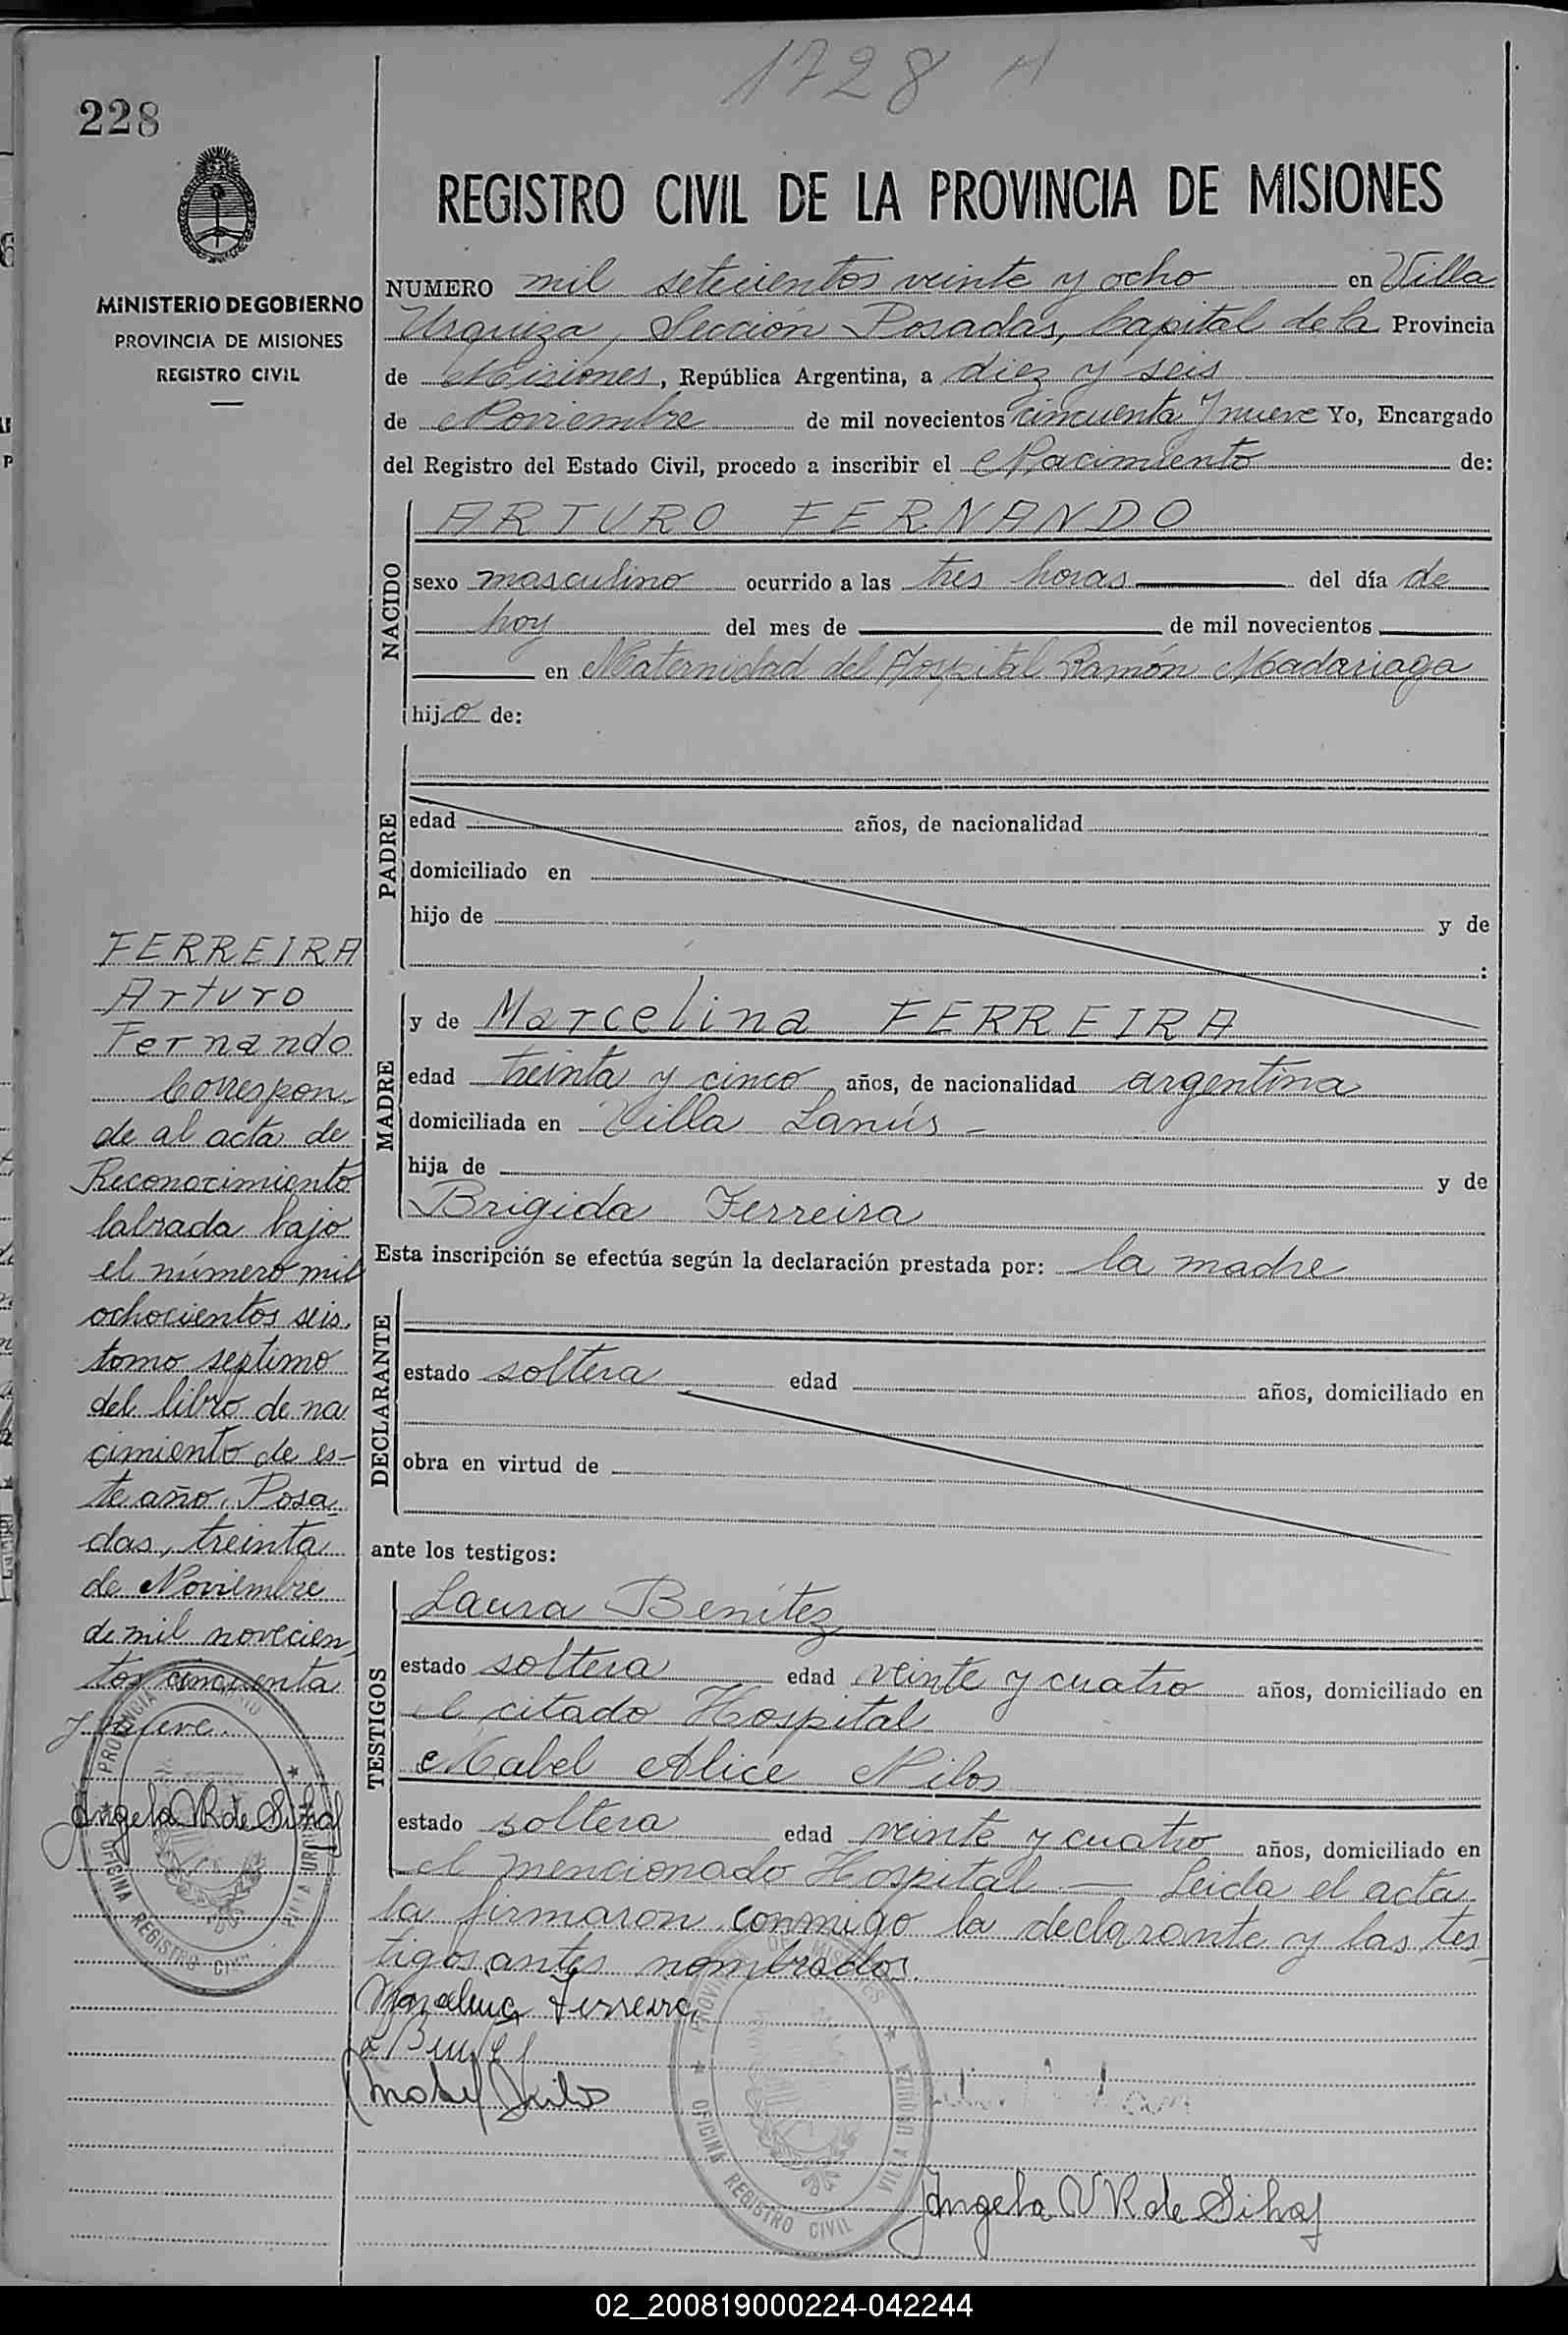 1728
228
MINISTERIO DE GOBIERNO
PROVINCIA DE MISIONES
REGISTRO CIVIL
REGISTRO CIVIL DE LA PROVINCIA DE MISIONES
NUMERO mil setecientos veinte y ocho en Villa
Urquiza, Sección Posadas, Capital de la Provincia
de Misiones, República Argentina, a diez y seis
de Noviembre de mil novecientos cincuenta y nueve Yo, Encargado
del Registro del Estado Civil, procedo a inscribir el Nacimiento de:
NACIDO
ARTURO FERNANDO
sexo masculino ocurrido a las tres horas del día de
hoy del mes de de mil novecientos
en Maternidad del Hospital Ramón Madariaga
hijo de:
PADRE
edad años, de nacionalidad
domiciliado en
hijo de y de
:
MADRE
y de Marcelina FERREIRA
edad treinta y cinco años, de nacionalidad argentina
domiciliada en Villa Lanús -
hija de y de
Brigida Ferreira
Esta inscripción se efectúa según la declaración prestada por: la madre
DECLARANTE
estado soltera edad años, domiciliado en
obra en virtud de
ante los testigos:
TESTIGOS
Laura Benítez
estado soltera edad veinte y cuatro años, domiciliado en
el citado Hospital
Mabel Alice Nilos
estado soltera edad veinte y cuatro años, domiciliado en
el mencionado Hospital — Leida el acta
la firmaron conmigo la declarante y las tes
tigos antes nombrados.
Marcelina Ferreira
Angela VR de Silhaf
FERREIRA
Arturo
Fernando
Correspon-
de al acta de
Reconocimiento
labrada bajo
el número mil
ochocientos seis,
tomo septimo
del libro de na
cimiento de es-
te año. Posa
das, treinta
de Noviembre
de mil novecien
tos cincuenta
y nueve.
Angela VR de Silhaf
PROVINCIA DE MISIONES
OFICINA REGISTRO CIVIL
VILLA URQUIZA
02_200819000224-042244